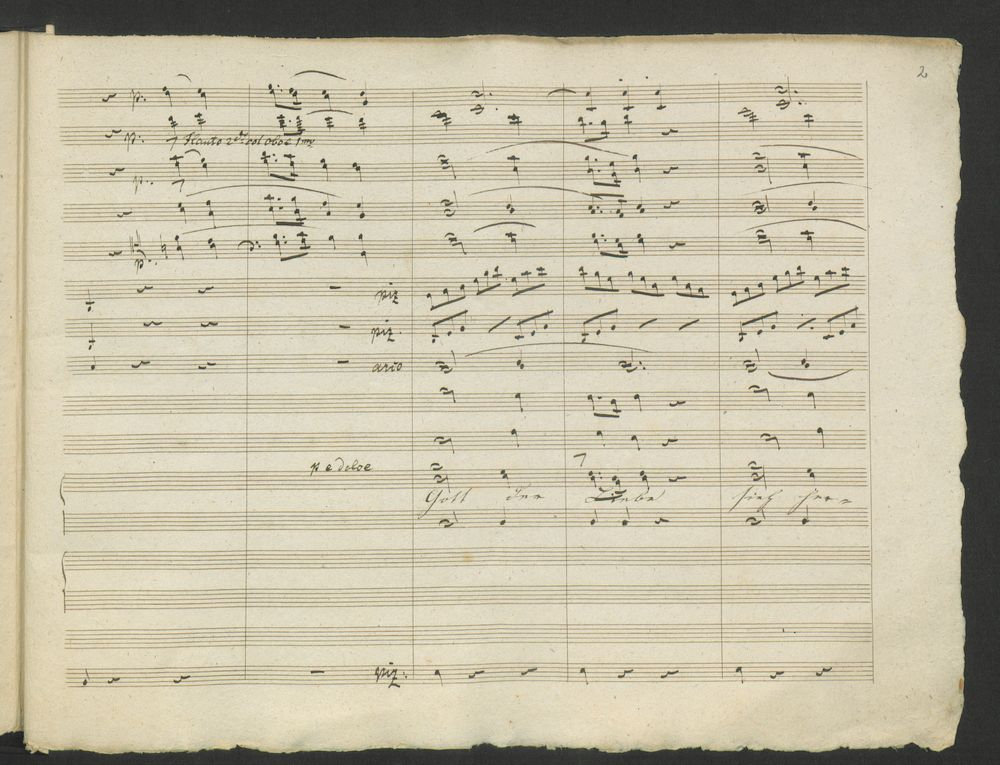 2
p.
p. Flauto 2do col Oboe 1mo
p.
p.
piz
piz.
arco
p e dolce
Gott der Liebe sieh her=
piz.